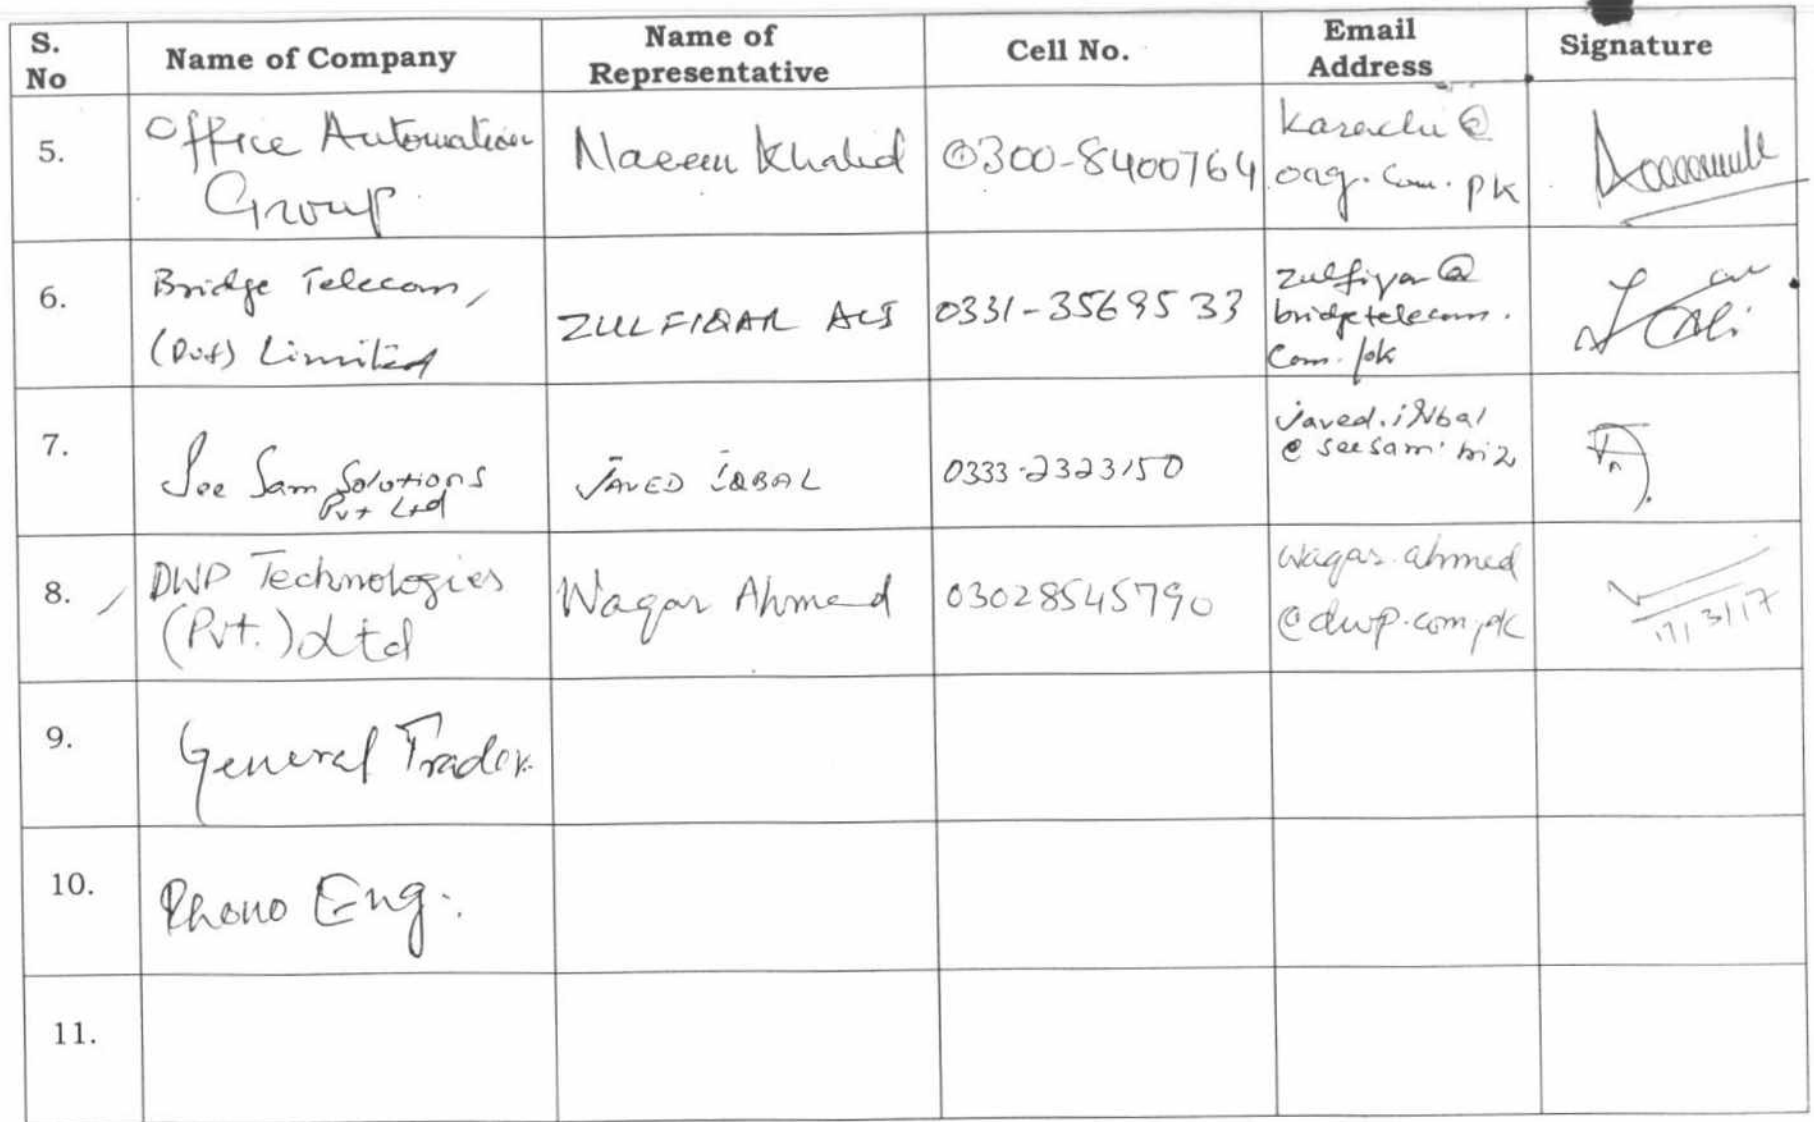 S. No Name of Company Name of Representative Cell No. Email Address Signature
5.
Office Automation
Group
Naeem Khalid
0300-8400764
Karachi@
oag.com.pk
6.
Bridge Telecom,
(Pvt) Limited
ZULFIQAR ALI
0331-3569533
zulfiqar@
bridgetelecom.
com.pk
Ali
7.
See Sam Solutions
Pvt Ltd
JAVED IQBAL
0333-2323150
javed.iqbal
@seesam.biz
8.
DWP Technologies
(Pvt.) Ltd
Waqar Ahmed
03028545790
waqar.ahmed
@dwp.com.pk
17/3/17
9.
General Trader
10.
Phono Eng.
11.